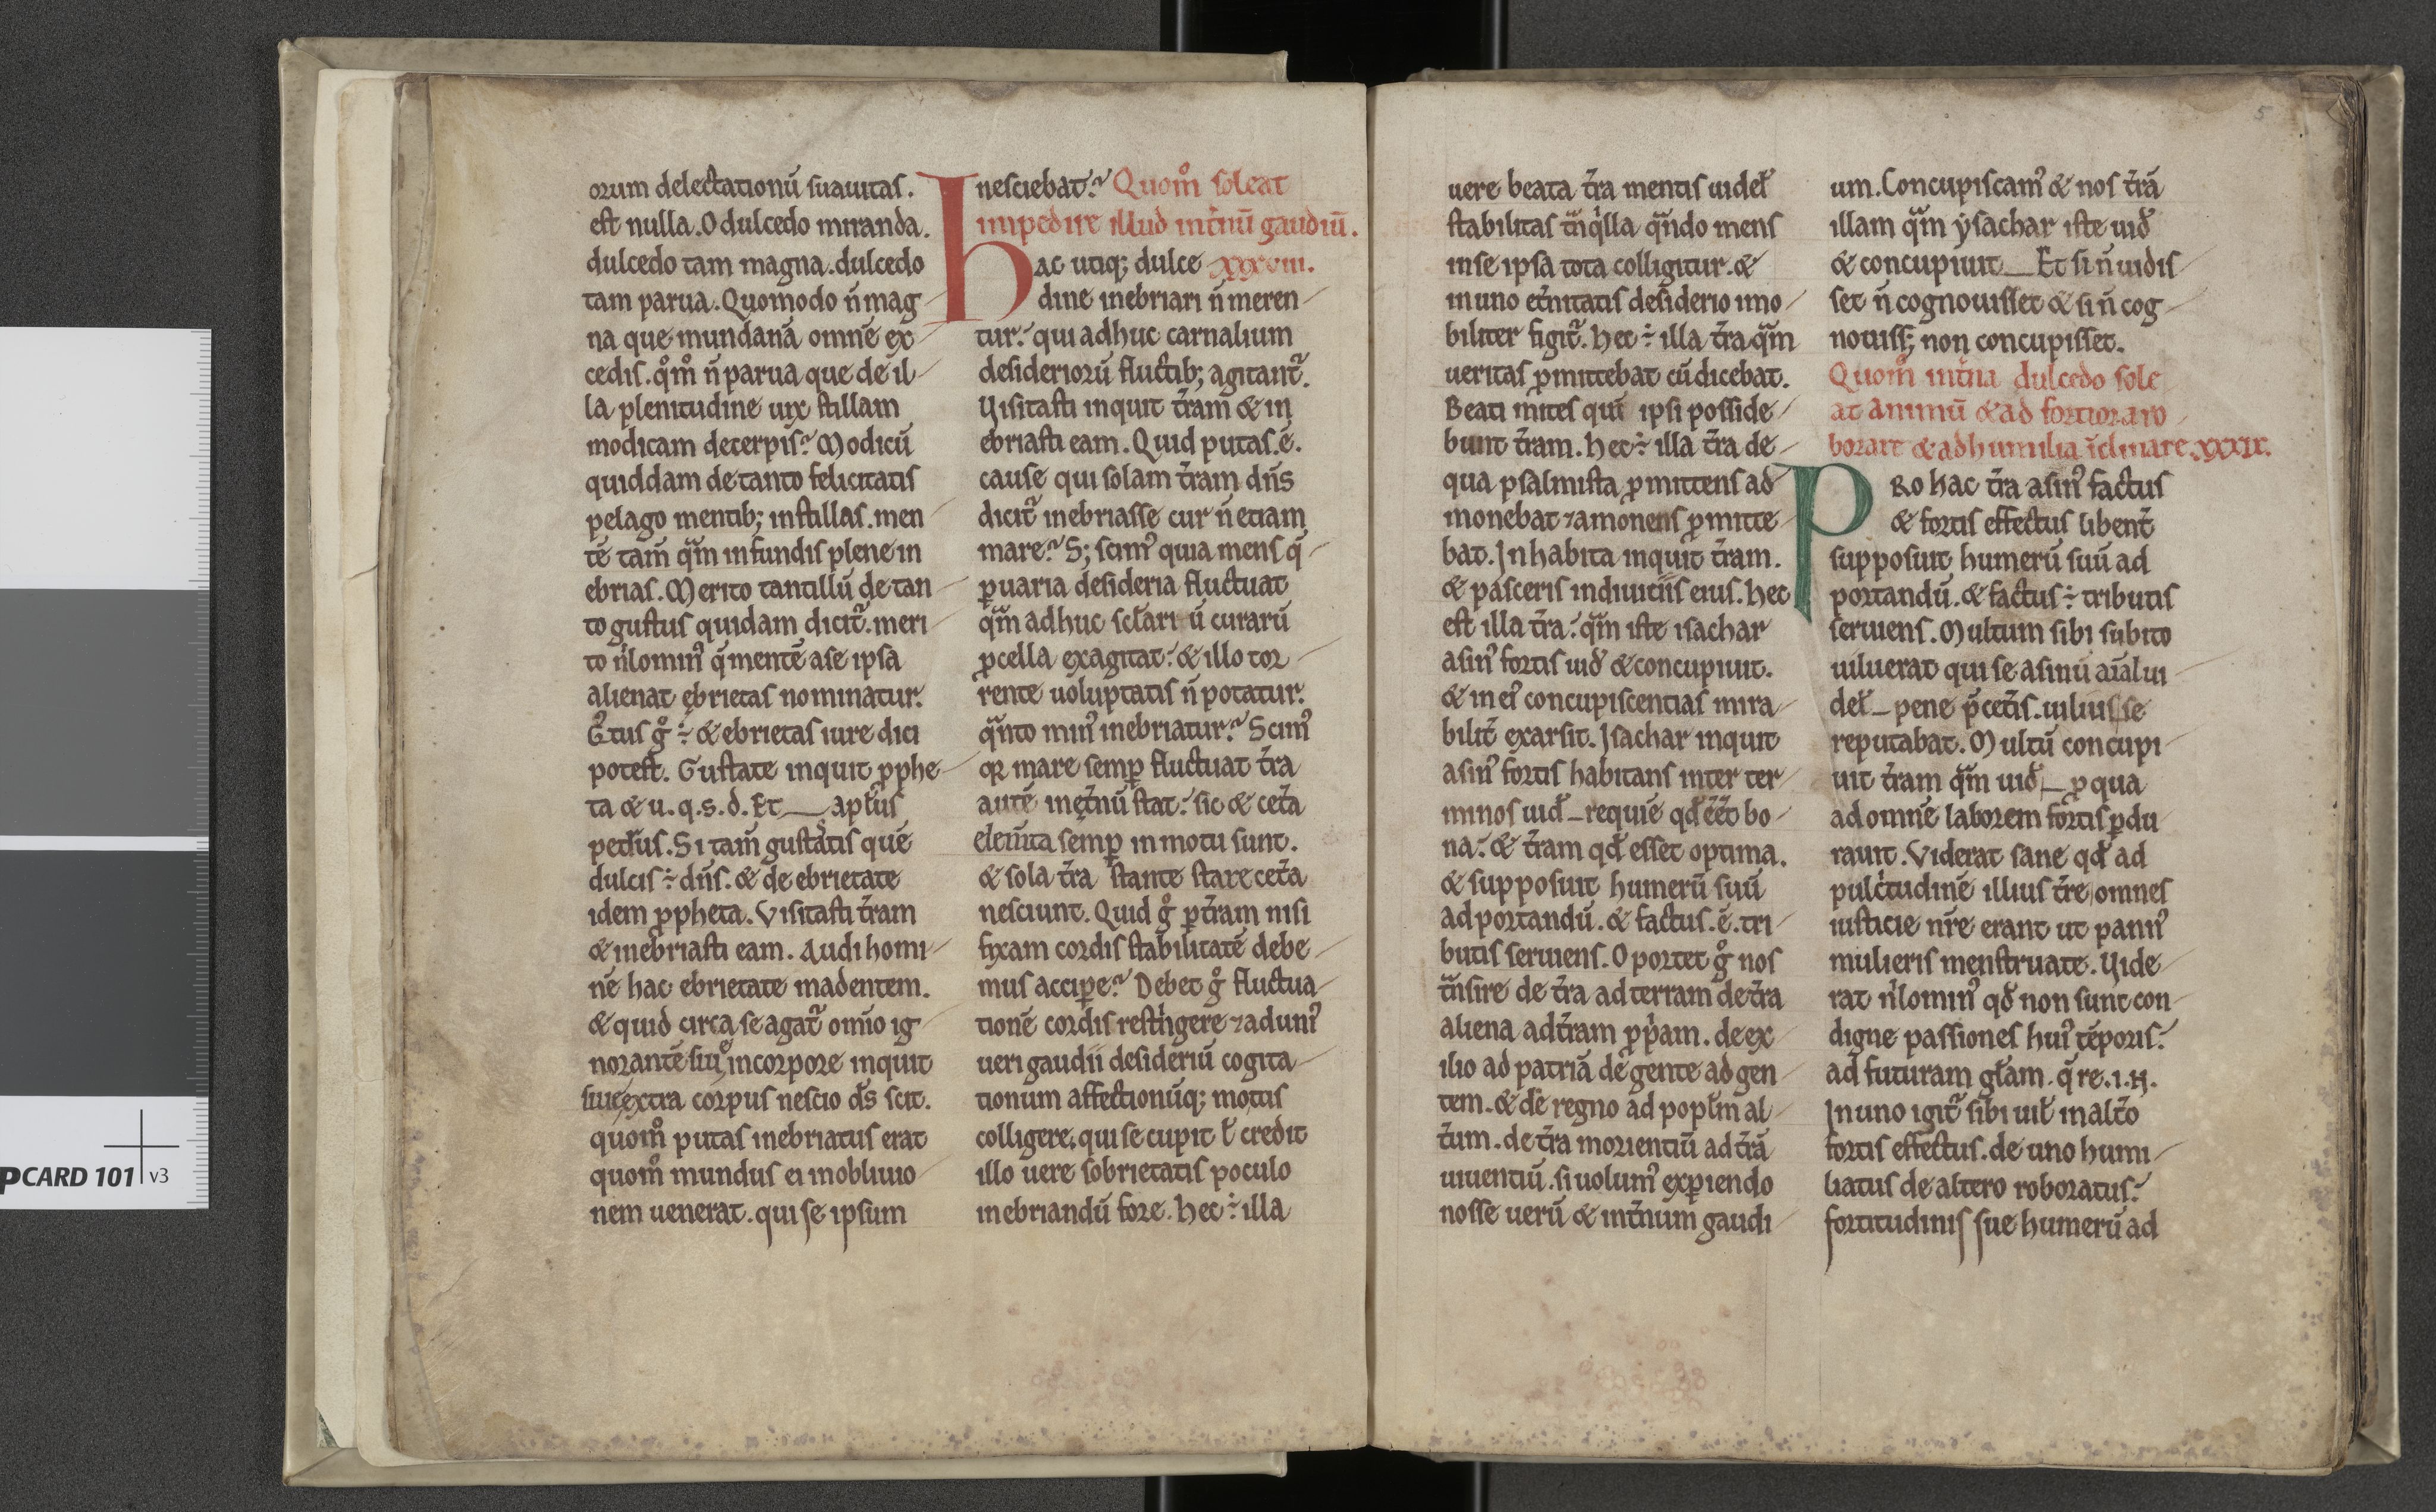 orum delectationū suauitas.
est nulla. O dulcedo miranda.
dulcedo tam magna. dulcedo
tam parua. Quomodo n̄ mag
na que mundanā omnē ex
cedis. qm̊o n̄ parua que de il
la plenitudine uix stillam
modicam decerpis? Modicū
quiddam de tanto felicitatis
pelago mentib; instillas. men
tē tam̄ qᵃm infundis plene in
ebrias. Merito tantillū de tan
to gustus quidam dicit᷑. meri
to nⁱlominꝰ q̄ mentē a se ipsa
alienat ębrietas nominatur.
Gᵘstus g̊ ÷ & ebrietas iure dici
potest. Gustate inquit ꝓphe
ta & u. q. s. d. Et apl̄us
petrus. Si tam̄ gustatis quē
dulcis ÷ dn̄s. & de ebrietate
idem ꝓpheta. Visitasti tr̄am
& inebriasti eam. Audi homi
nē hac ebrietate madentem.
& quid circa se agat᷑ om̄io ig
norantē siue incorpore inquit
siue extra corpus nescio ds̄ scit.
quom̊ putas inebriatus erat
quom̊ mundus ei in obliuio
nem uenerat. qui se ipsum
nesciebat? Quom̊ soleat
impedire illud int̄nū gaudiū.
Hac utiq; dulce XXXVIII.
dine inebriari n̄ meren
tur. qui adhuc carnalium
desideriorū fluctib; agitant᷑.
Visitasti inquit tr̄am & in
ebriasti eam. Quid putas .ē.
cause qui solam tr̄am dn̄s
dicit᷑ inebriasse cur n̄ etiam
mare? S; scimꝰ quia mens q̄
ꝑ uaria desideria fluctuat
qᵃm adhuc sc̄lariū curarū
ꝓcella exagitat. & illo tor
rente uoluptatis n̄ potatur.
qᵃnto minꝰ inebriatur? Scimꝰ
qꝛ mare semꝑ fluctuat tr̄a
autē inęt̄nū stat. sic & cet̄a
elem̄ta semꝑ in motu sunt.
& sola tr̄a stante stare cet̄a
nesciunt. Quid g̊ ꝑ tr̄am nisi
fixam cordis stabilitatē debe
mus acciꝑe? Debet g̊ fluctua
tionē cordis restⁱngere ⁊ ad unꝰ
ueri gaudii desideriū cogita
tionum affectionūq; motus
colligere. qui se cupit ł credit
illo uere sobrietatis poculo
inebriandū fore. Hec ÷ illa
5
uere beata tr̄a mentis uidel᷑
stabilitas tᵃnqⁱlla qᵃndo mens
in se ipsa tota colligitur. &
in uno et̄nitatis desiderio imo
biliter figit᷑. Hec ÷ illa tr̄a qᵃm
ueritas ꝓmittebat cū dicebat.
Beati mites qm̄ ipsi posside
bunt tr̄am. Hec ÷ illa tr̄a de
qua psalmista ꝓmittens ad
monebat ⁊ amonens ꝓmitte
bat. Inhabita inquit tr̄am.
& pasceris indiuitiis eius. hec
est illa tr̄a. qᵃm iste isachar
asinꝰ fortis uid̄ & concupiuit.
& in eiꝰ concupiscentias mira
bilit̄ exarsit. Isachar inquit
asinꝰ fortis habitans inter ter
minos uid̄ requiē qd̄ eēt bo
na. & tr̄am qd̄ esset optima.
& supposuit humerū suū
ad portandū. & factus .ē. tri
butis seruiens. Oportet g̊ nos
tᵃnsire de tr̄a ad terram de tr̄a
aliena ad tr̄am ꝓpⁱam. de ex
ilio ad patriā de gente ad gen
tem. & de regno ad popl̄m al
t̄um. de tr̄a morientiū ad tr̄ā
uiuentiū. si uolumꝰ exꝑiendo
nosse uerū & int̄num gaudi
um. Concupiscamꝰ & nos tr̄ā
illam qᵃm ysachar iste uid̄
& concupiuit Et si n̄ uidis
set n̄ cognouisset & si n̄ cog
nouiss; non concupisset.
Quom̊ int̄na dulcedo sole
at animū & ad fortiora ro
borare & ad humilia īclinare. XXXIX.
PRo hac tr̄a asinꝰ factus
& fortis effectus libent̄
supposuit humerū suū ad
portandū. & factus ÷ tributis
seruiens. Multum sibi subito
uiluerat qui se asinū aīal ui
del᷑ pene p̄ cet̄is. uiliuisse
reputabat. Multū concupi
uit tr̄am qᵃm uid̄ ꝓ qua
ad omnē laborem fortis ꝑdu
rauit. Viderat sane qd̄ ad
pulcᵗtudinē illius tr̄e omnes
iusticie nr̄e erant ut pannꝰ
mulieris menstruate. Vide
rat nⁱlominꝰ qd̄ non sunt con
digne passiones huiꝰ tēporis.
ad futuram gl̄am. q̄ re. i. n.
In uno igit᷑ sibi uil᷑ in alt̄o
fortis effectus. de uno humi
liatus de altero roboratus.
fortitudinis sue humerū ad
PCARD 101 v3